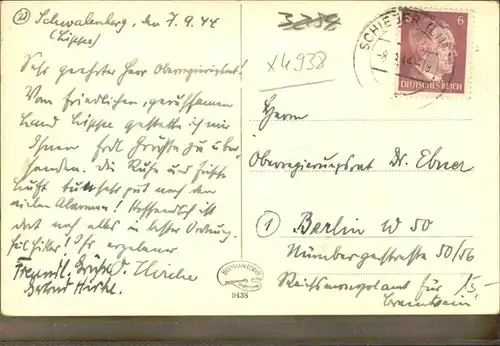 (21) Schwalenberg, den 7.9.44
(Lippe)
Sehr geehrter Herr Oberregierungsrat!
Vom friedlichen, geruhsamen
Land Lippe gestatte ich mir
Ihnen Erg. Grüsse zu über-
senden. Die Ruhe und
Luft tut sehr gut nach den
vielen Alarmen! Hoffentlich ist
dort noch alles in bester Ordnung.
Heil Hitler! Ihr ergebener
Freundl. Grüße O. Hirche
Gertrud Hirche.
3234
x4938
SCHIEDER (LIPPE)
6
DEUTSCHES REICH
Herrn
Oberregierungsrat Dr. Ebner
(1) Berlin W 50
Nürnbergerstraße 50/56
Reichsmonopolamt für
Branntwein
15-
9438